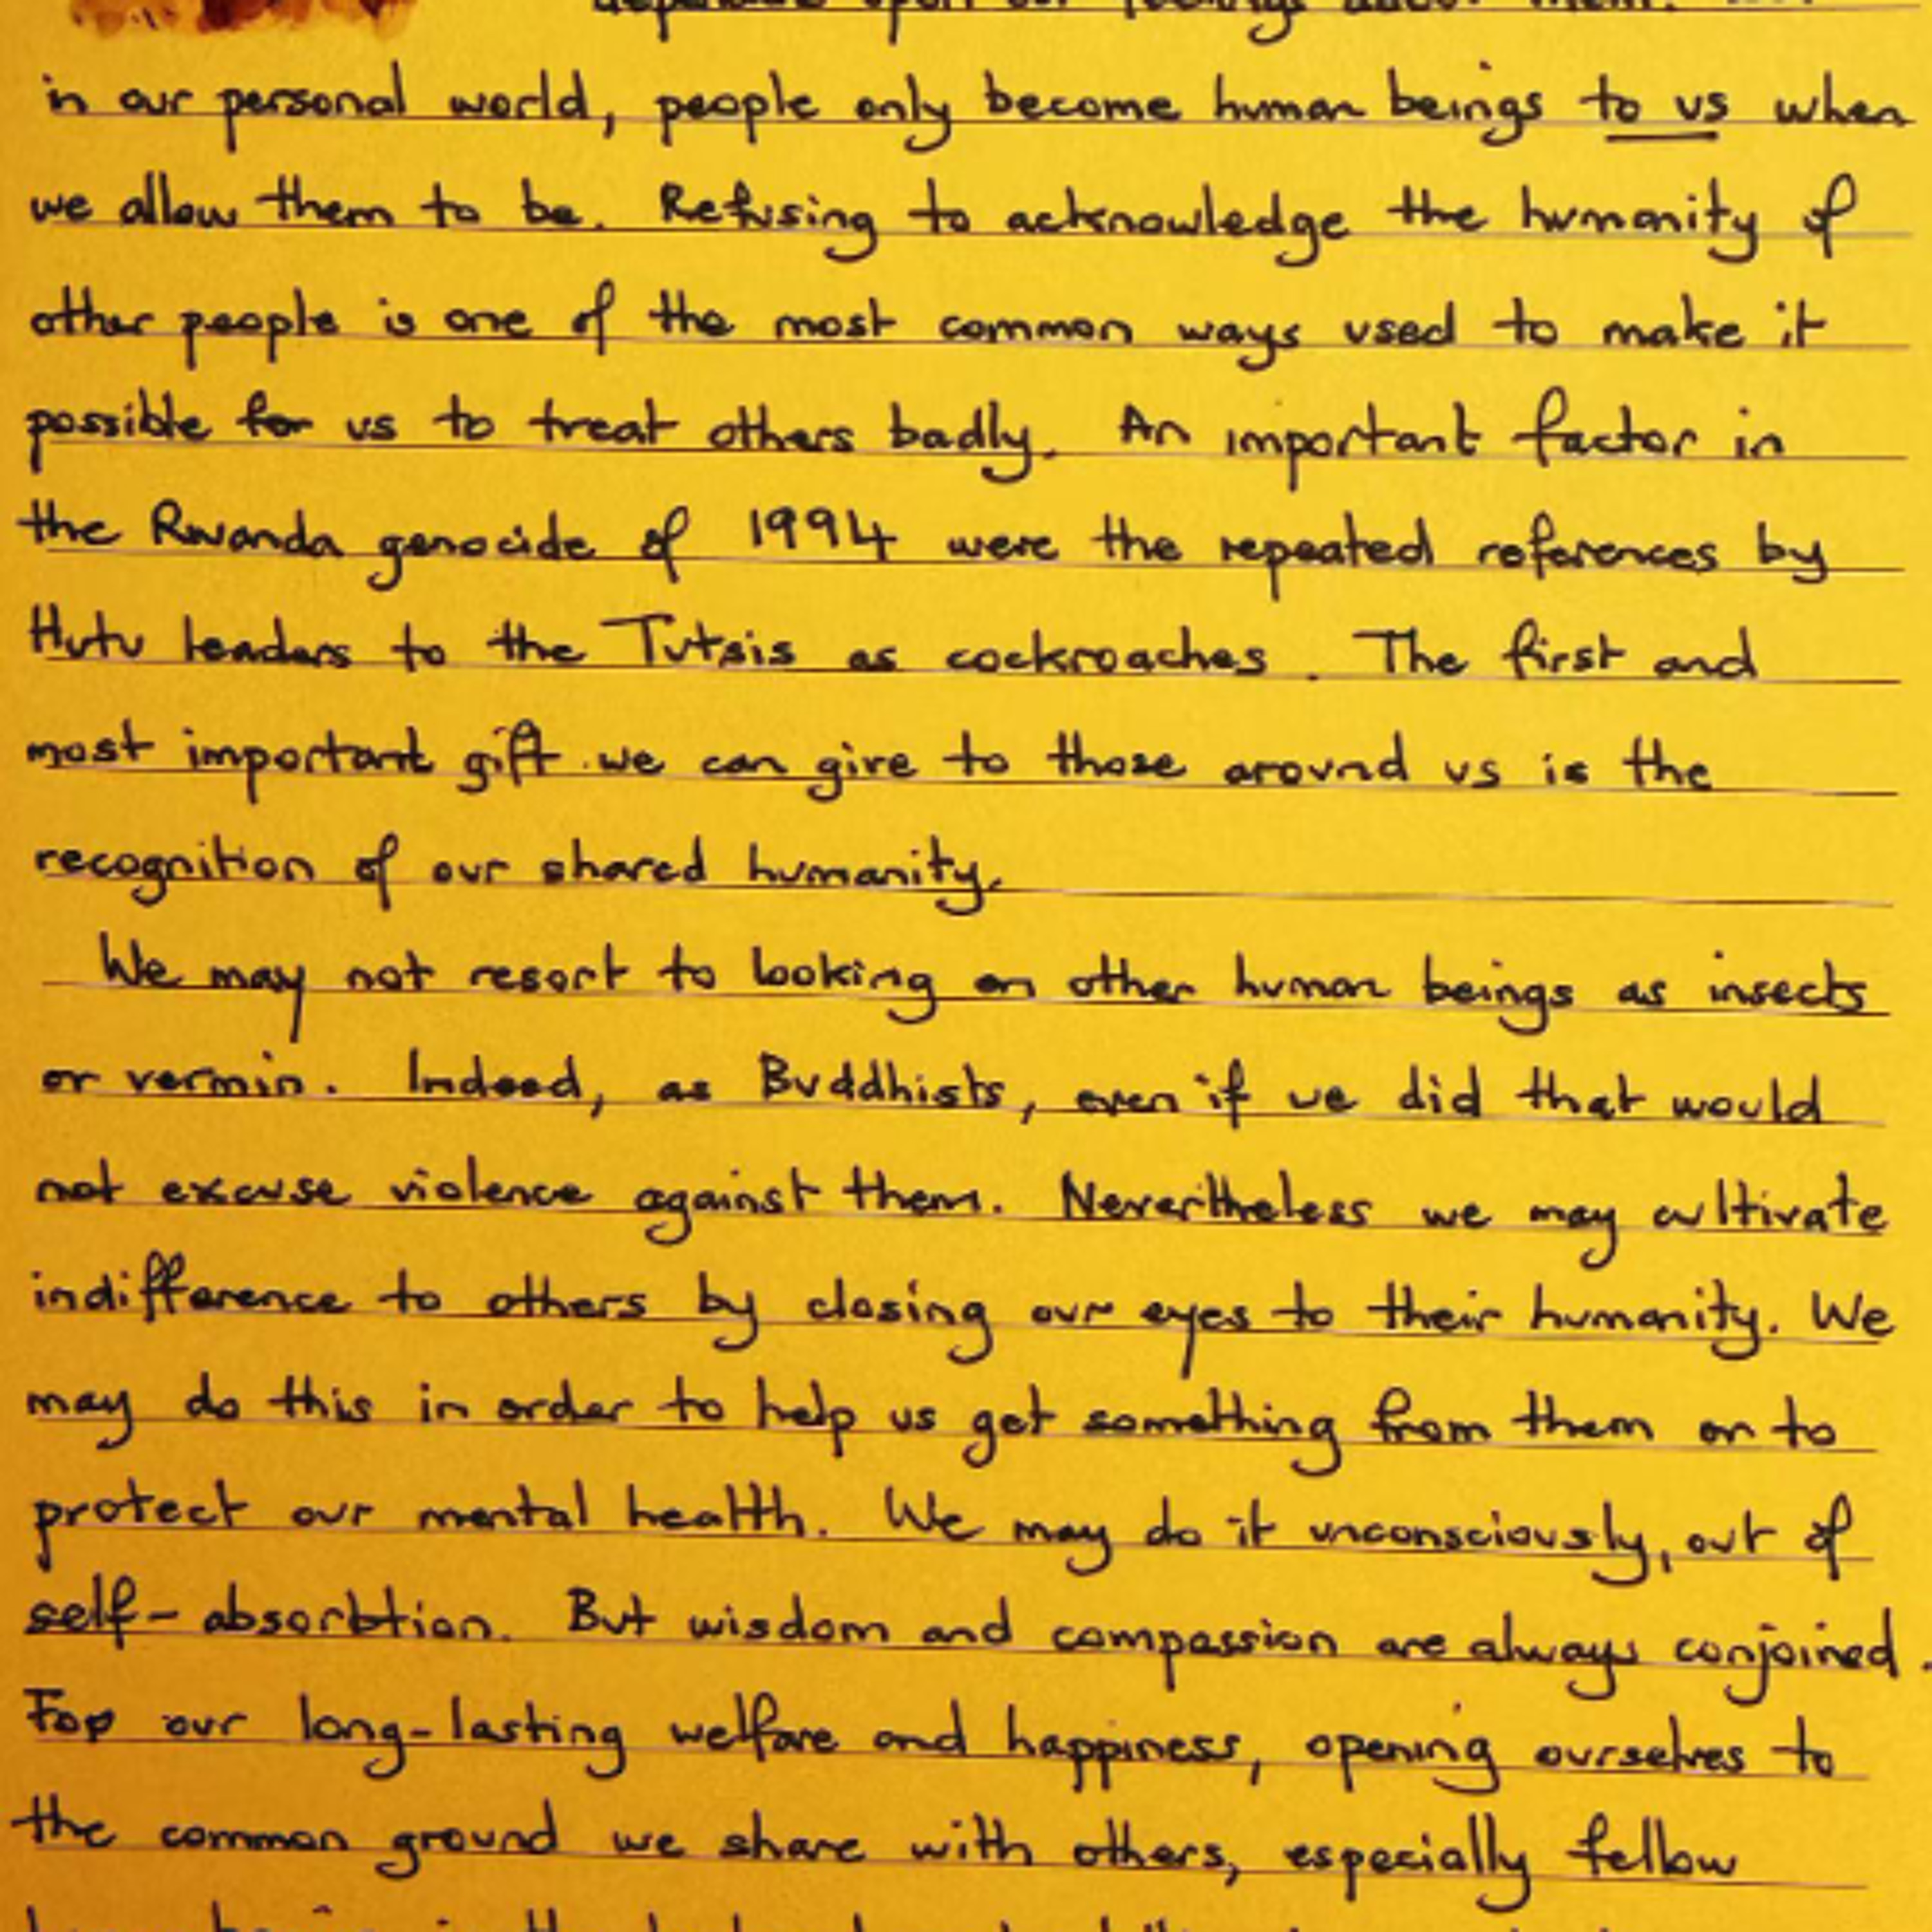 in our personal world, people only become human beings to us when
we allow them to be. Refusing to acknowledge the humanity of
other people is one of the most common ways used to make it
possible for us to treat others badly. An important factor in
the Rwanda genocide of 1994 were the repeated references by
Hutu leaders to the Tutsis as cockroaches. The first and
most important gift we can give to those around us is the
recognition of our shared humanity.
We may not resort to looking on other human beings as insects
or vermin. Indeed, as Buddhists, even if we did that would
not excuse violence against them. Nevertheless we may cultivate
indifference to others by closing our eyes to their humanity. We
may do this in order to help us get something from them or to
protect our mental health. We may do it unconsciously, out of
self-absorbtion. But wisdom and compassion are always conjoined.
For our long-lasting welfare and happiness, opening ourselves to
the common ground we share with others, especially fellow